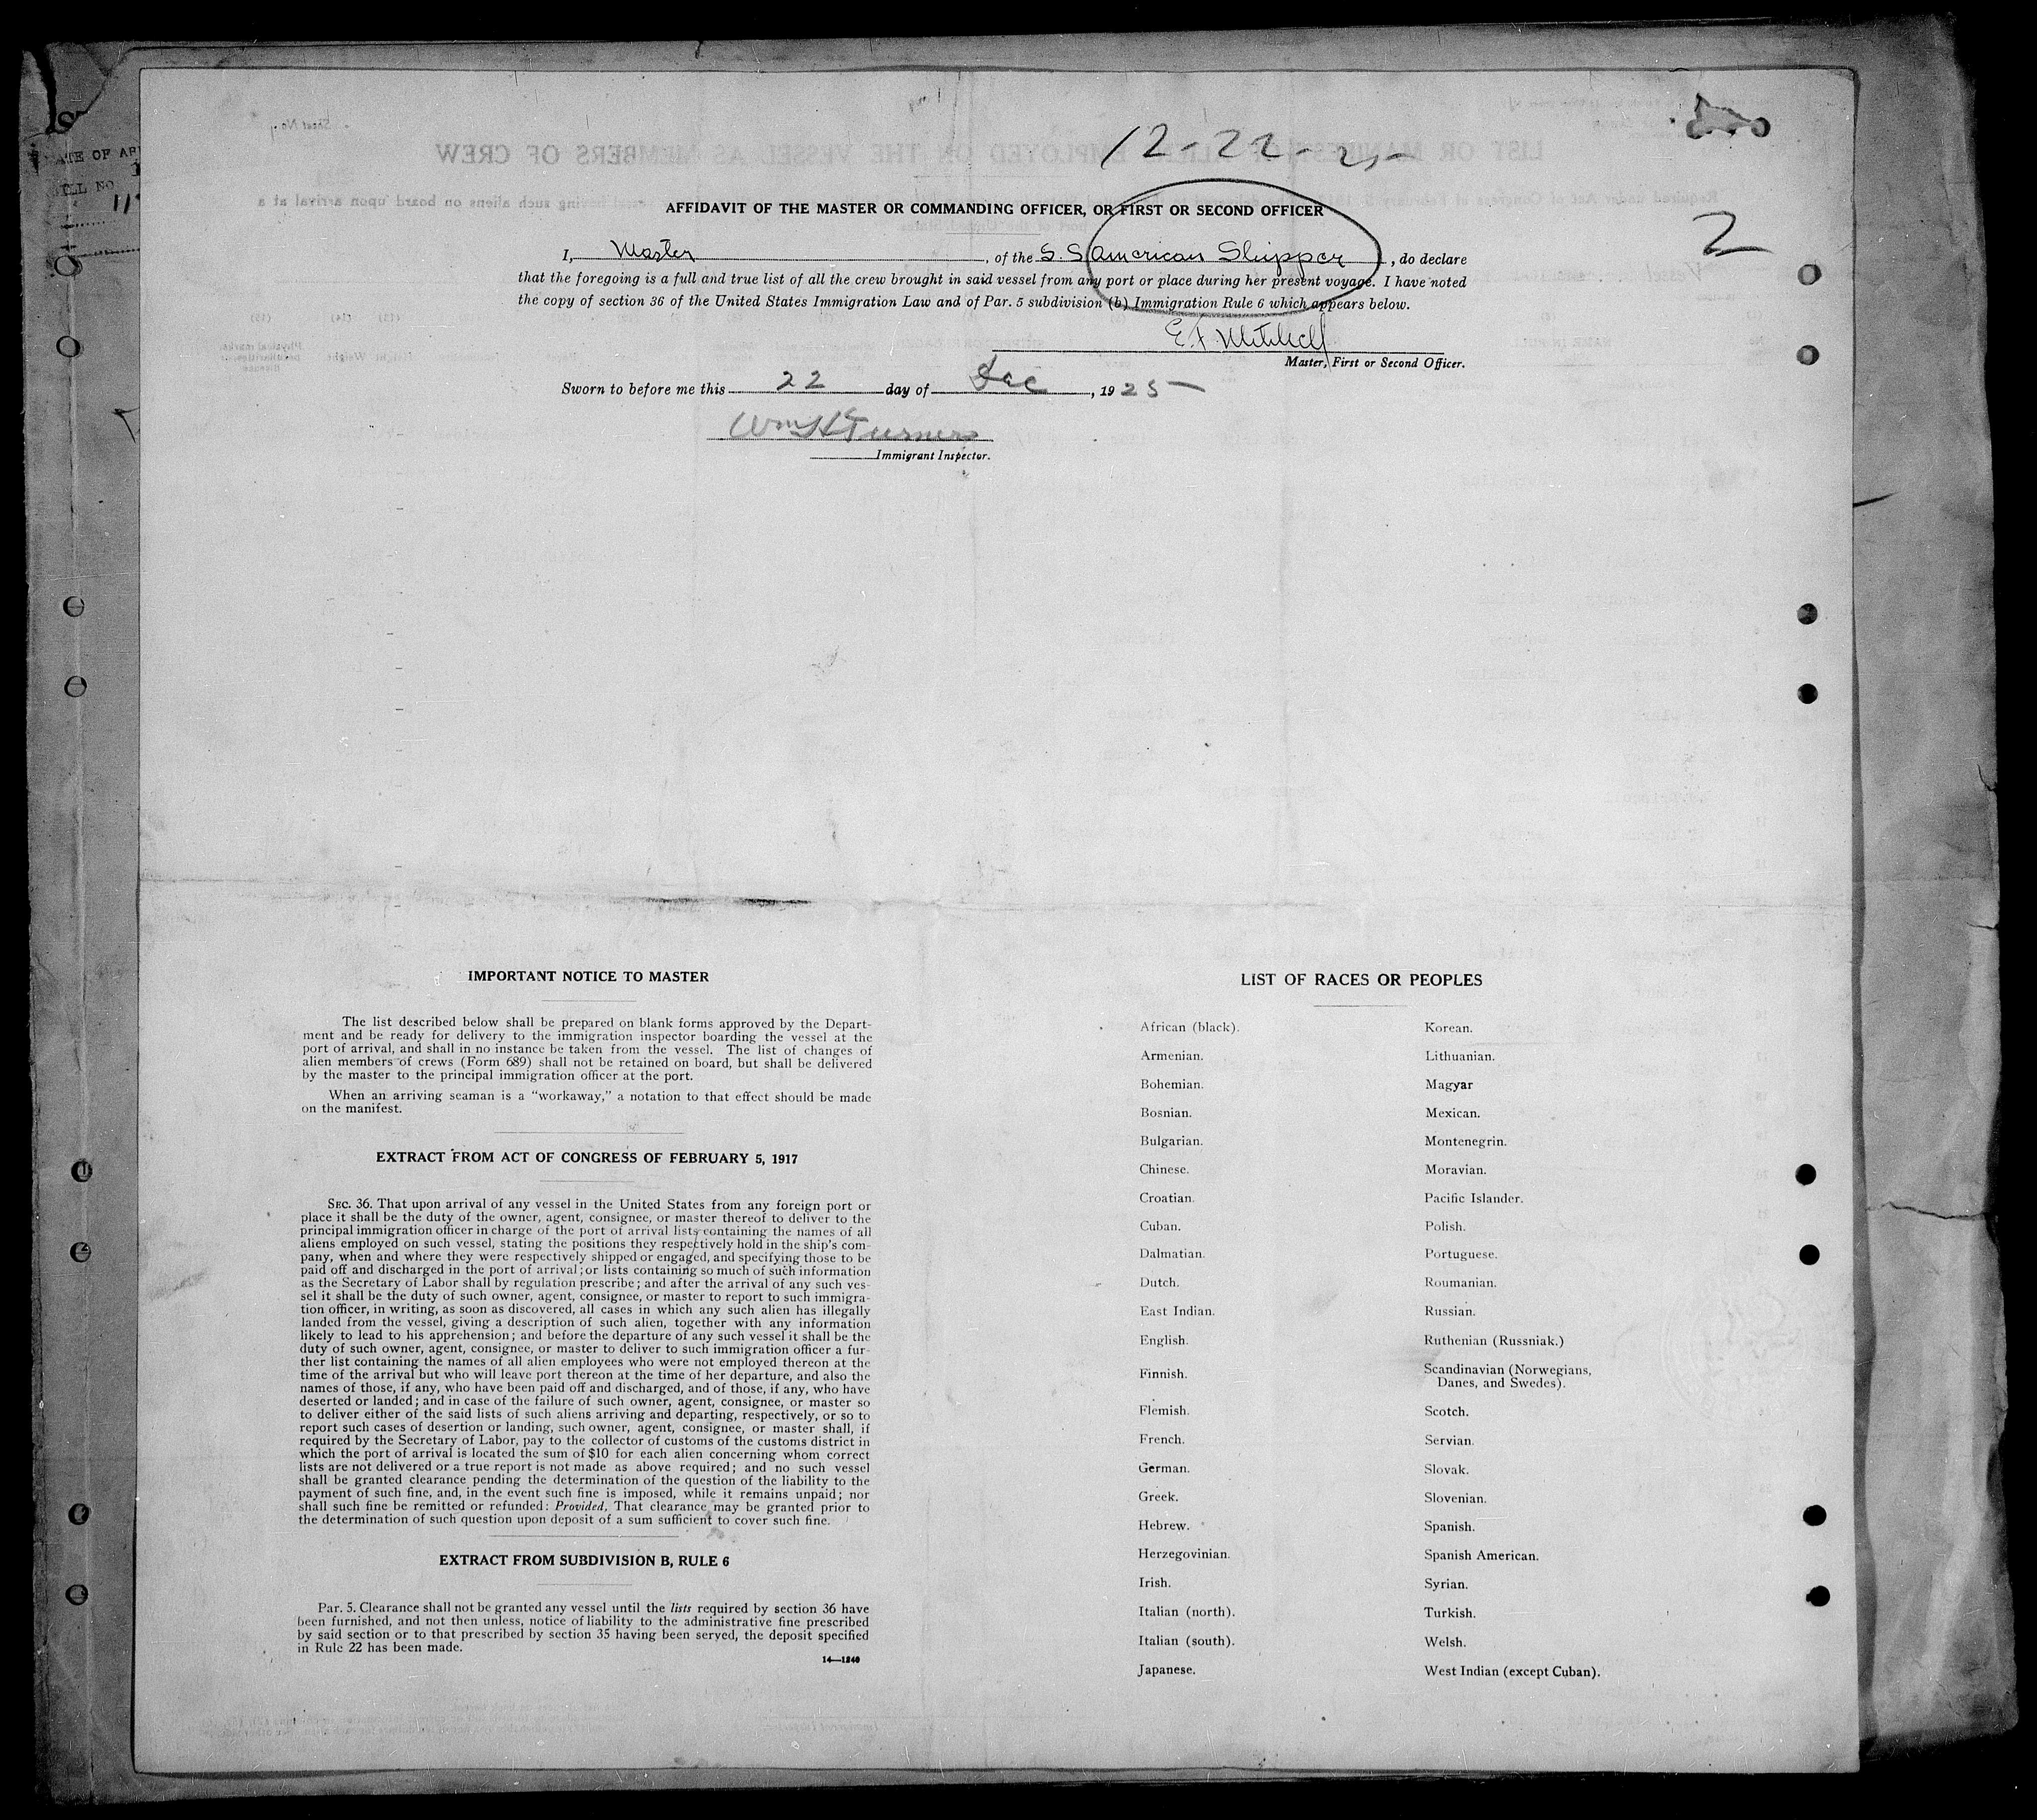 12-22-25
2
AFFIDAVIT OF THE MASTER OR COMMANDING OFFICER, OR FIRST OR SECOND OFFICER
I, Master, of the S. S. American Shipper, do declare
that the foregoing is a full and true list of all the crew brought in said vessel from any port or place during her present voyage. I have noted
the copy of section 36 of the United States Immigration Law and of Par. 5 subdivision (b) Immigration Rule 6 which appears below.
E. F. Mitchell
Master, First or Second Officer.
Sworn to before me this 22 day of Dec, 1925
Wm H Turner
Immigrant Inspector.
ATE OF AR
IMPORTANT NOTICE TO MASTER
The list described below shall be prepared on blank forms approved by the Depart-
ment and be ready for delivery to the immigration inspector boarding the vessel at the
port of arrival, and shall in no instance be taken from the vessel. The list of changes of
alien members of crews (Form 689) shall not be retained on board, but shall be delivered
by the master to the principal immigration officer at the port.
When an arriving seaman is a “workaway,” a notation to that effect should be made
on the manifest.
EXTRACT FROM ACT OF CONGRESS OF FEBRUARY 5, 1917
SEC. 36. That upon arrival of any vessel in the United States from any foreign port or
place it shall be the duty of the owner, agent, consignee, or master thereof to deliver to the
principal immigration officer in charge of the port of arrival lists containing the names of all
aliens employed on such vessel, stating the positions they respectively hold in the ship's com-
pany, when and where they were respectively shipped or engaged, and specifying those to be
paid off and discharged in the port of arrival; or lists containing so much of such information
as the Secretary of Labor shall by regulation prescribe; and after the arrival of any such ves-
sel it shall be the duty of such owner, agent, consignee, or master to report to such immigra-
tion officer, in writing, as soon as discovered, all cases in which any such alien has illegally
landed from the vessel, giving a description of such alien, together with any information
likely to lead to his apprehension; and before the departure of any such vessel it shall be the
duty of such owner, agent, consignee, or master to deliver to such immigration officer a fur-
ther list containing the names of all alien employees who were not employed thereon at the
time of the arrival but who will leave port thereon at the time of her departure, and also the
names of those, if any, who have been paid off and discharged, and of those, if any, who have
deserted or landed; and in case of the failure of such owner, agent, consignee, or master so
to deliver either of the said lists of such aliens arriving and departing, respectively, or so to
report such cases of desertion or landing, such owner, agent, consignee, or master shall, if
required by the Secretary of Labor, pay to the collector of customs of the customs district in
which the port of arrival is located the sum of $10 for each alien concerning whom correct
lists are not delivered or a true report is not made as above required; and no such vessel
shall be granted clearance pending the determination of the question of the liability to the
payment of such fine, and, in the event such fine is imposed, while it remains unpaid; nor
shall such fine be remitted or refunded: Provided, That clearance may be granted prior to
the determination of such question upon deposit of a sum sufficient to cover such fine.
EXTRACT FROM SUBDIVISION B, RULE 6
Par. 5. Clearance shall not be granted any vessel until the lists required by section 36 have
been furnished, and not then unless, notice of liability to the administrative fine prescribed
by said section or to that prescribed by section 35 having been served, the deposit specified
in Rule 22 has been made.
14—1240
LIST OF RACES OR PEOPLES
African (black).
Armenian.
Bohemian.
Bosnian.
Bulgarian.
Chinese.
Croatian.
Cuban.
Dalmatian.
Dutch.
East Indian.
English.
Finnish.
Flemish.
French.
German.
Greek.
Hebrew.
Herzegovinian.
Irish.
Italian (north).
Italian (south).
Japanese.
Korean.
Lithuanian.
Magyar
Mexican.
Montenegrin.
Moravian.
Pacific Islander.
Polish.
Portuguese.
Roumanian.
Russian.
Ruthenian (Russniak.)
Scandinavian (Norwegians,
Danes, and Swedes).
Scotch.
Servian.
Slovak.
Slovenian.
Spanish.
Spanish American.
Syrian.
Turkish.
Welsh.
West Indian (except Cuban).